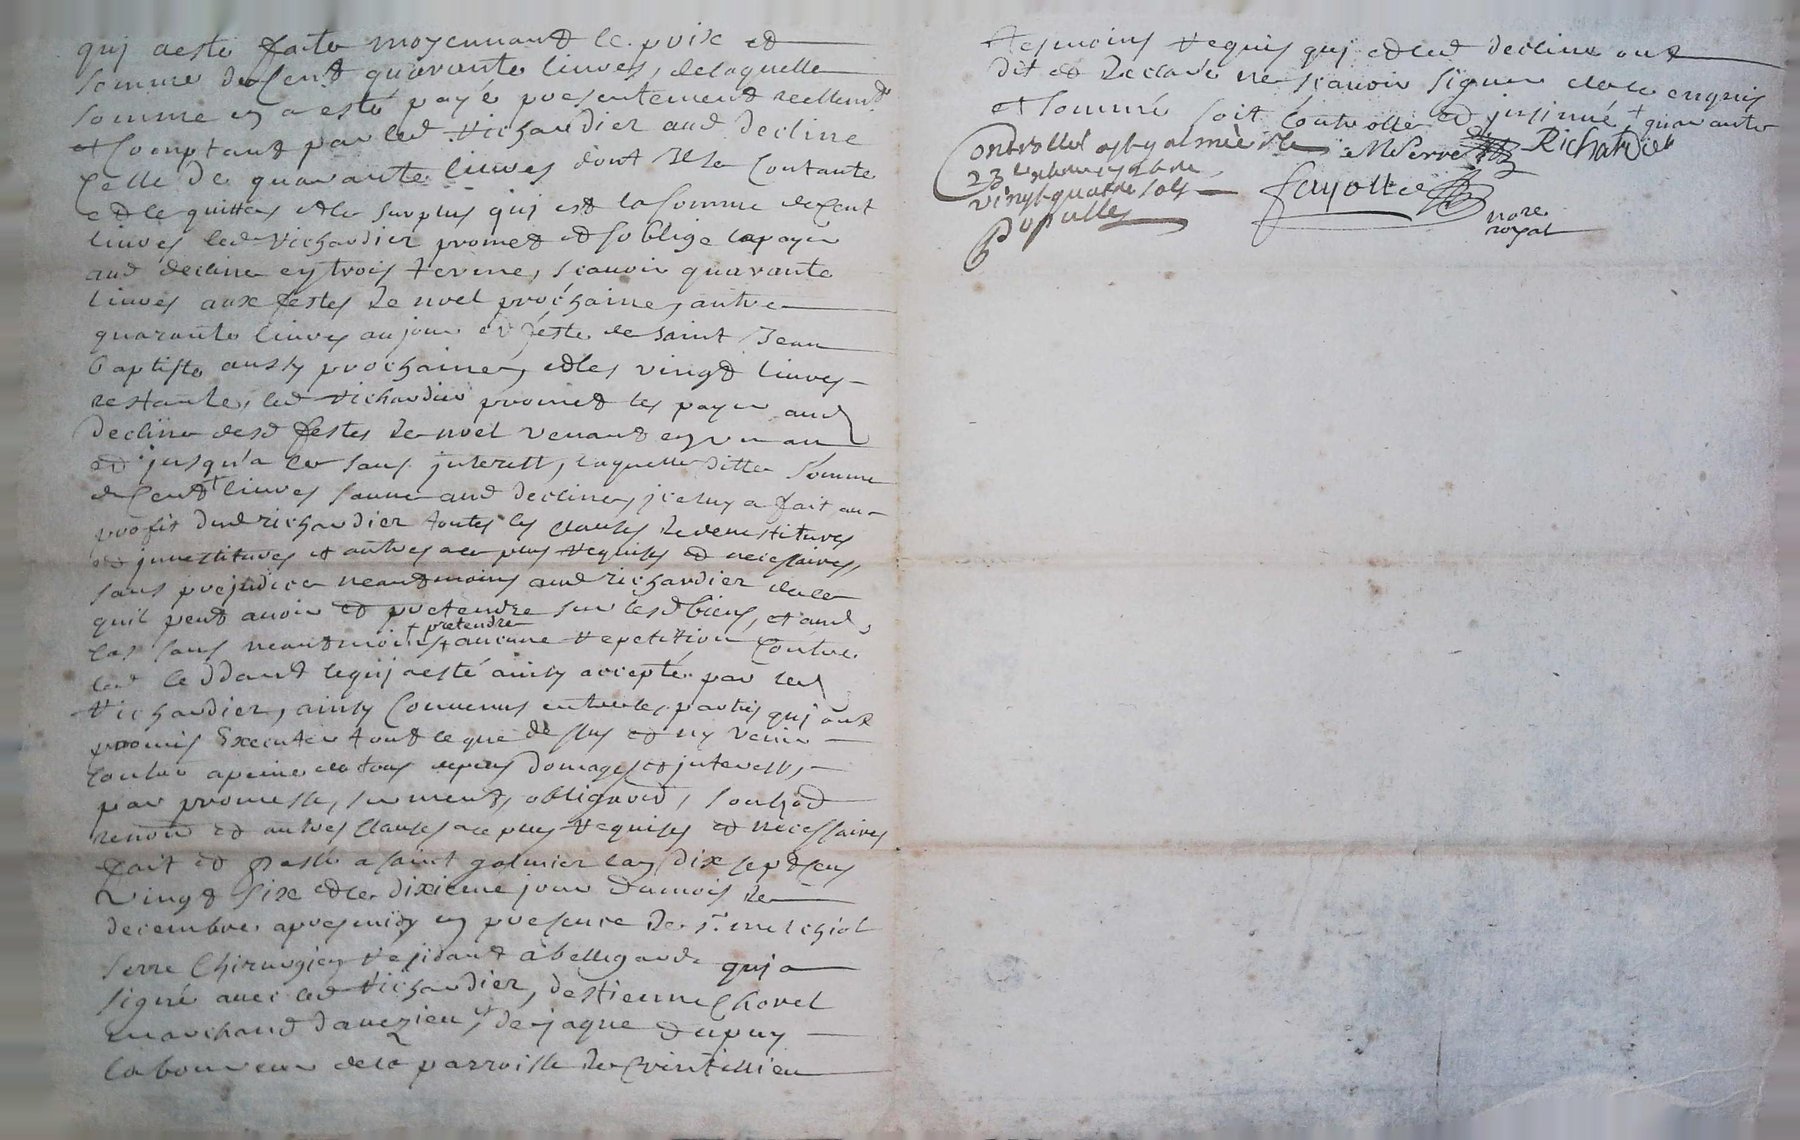 quj aesté faite moyennant le prix et
somme de Cent quarante liures, de laquelle
somme en a esté payé presentement reellemt
et Comptant par led Richardier aud decline
Celle de quarante liures dont Il se Contante
et le quitte, et le surplus quj est la somme de Cent
liures led Richardier promet et soblige la payer
aud decline en trois termes, scauoir quarante
liures aux festes de noel prochaines, autre
quarante liures au jour et feste de saint Jean
baptiste aussy prochaine, et les vingt liures
restante, led Richardier promet les payer aud
decline esd festes de noel venant en un an
et jusqua ce sans jnterest, laquelle ditte somme
de Cent liures sauue aud decline, jceluy a fait au
profit dud richardier toutes les clauses de deuestitures
et jnuestitures et autres a ce plus requises et necessaires,
sans prejudice neantmoins aud richardier de ce
quil peut auoir et pretendre sur lesd biens, et aud
cas sans neantmoins + pretendre aucune repetition Contre
led Ceddant ce quj a esté ainsy accepté par led
Richardier, ainsy Conuenus entre les parties quj ont
promis Executer tout ce que dessus et ny venir
Contre a peine de tous depens domages et jnterests,
par promesse, serment, obligaond, soubzod
renond et autres Clauses a ce plus requises et necessaires
fait et passé a saint galmier lan dix sept Cens
vingt six et le dixieme jour du mois de
decembre apres midy en presence de sr. melchiol
serre Chirurgien residant a bellegarde quj a
signé auec led Richardier, destienne Chovel
marchand dauezieu, et de jaque dupuy
laboureur de la parroisse de Cvintillieu
tesmoins requis quj et led decline ont
dit et declaré ne scauoir signer de ce enquis
et sommé soit Controllé et jnsinué + quarante
Controllé a st galmier le
23 decembre
vingt quatre sols
M Serre
Richardier
fayolle
nore
royal